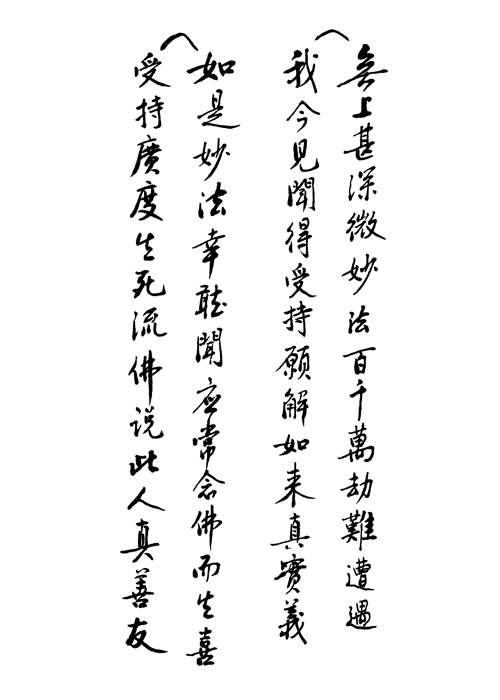 無上甚深微妙法百千萬劫難遭遇
我今見聞得受持願解如来真實義
如是妙法幸聴聞应常念佛而生喜
受持廣度生死流佛说此人真善友